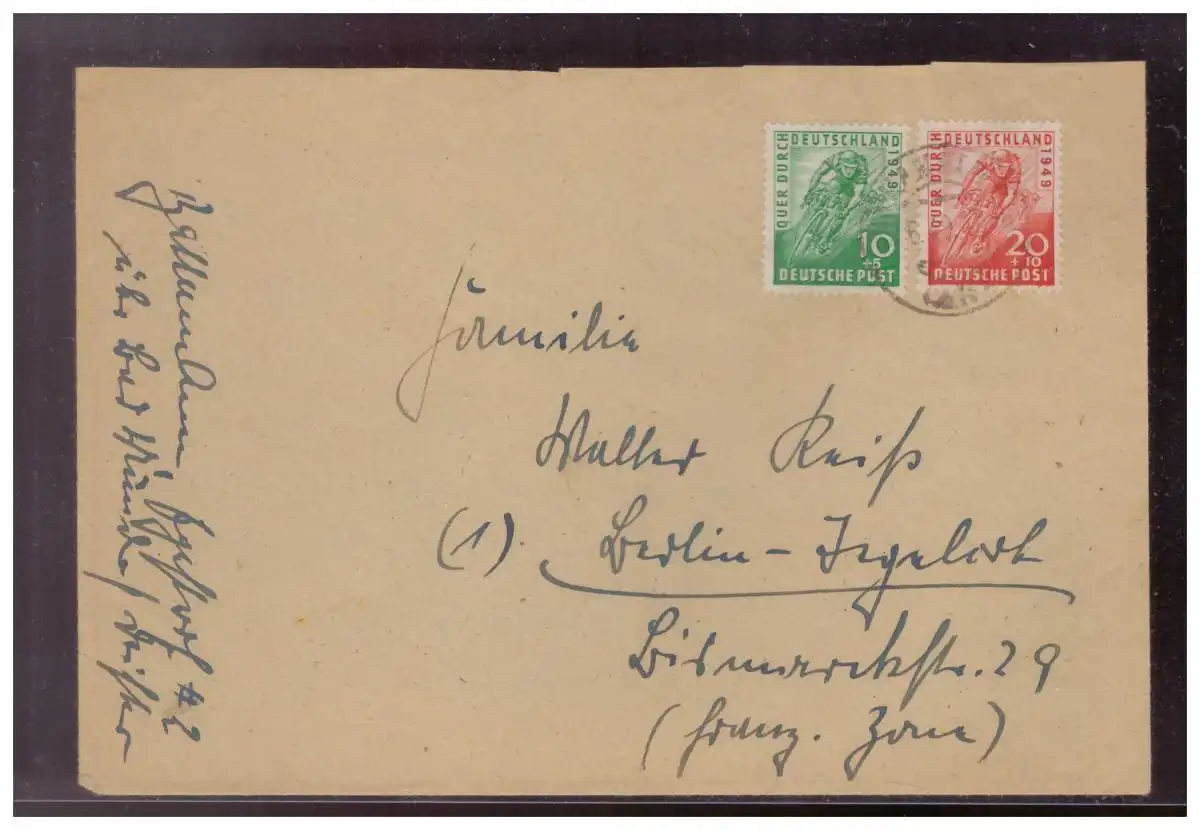 QUER DURCH DEUTSCHLAND 1949
10
+5
DEUTSCHE POST
QUER DURCH DEUTSCHLAND 1949
20
+10
DEUTSCHE POST
Familie
Walter Reiß
(1). Berlin-Tegelort
Bismarckstr. 29
(franz. Zone)
über Bad Münder/Deister